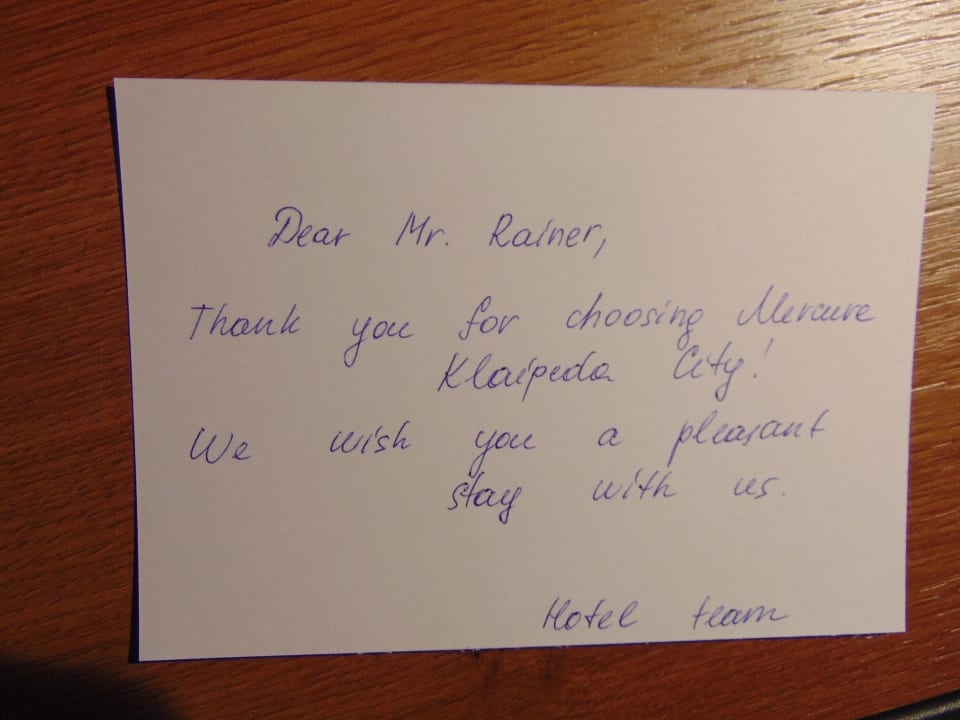 Dear Mr. Rainer,
Thank you for choosing Mercure
Klaipeda City!
We wish you a pleasant
stay with us.
Hotel team